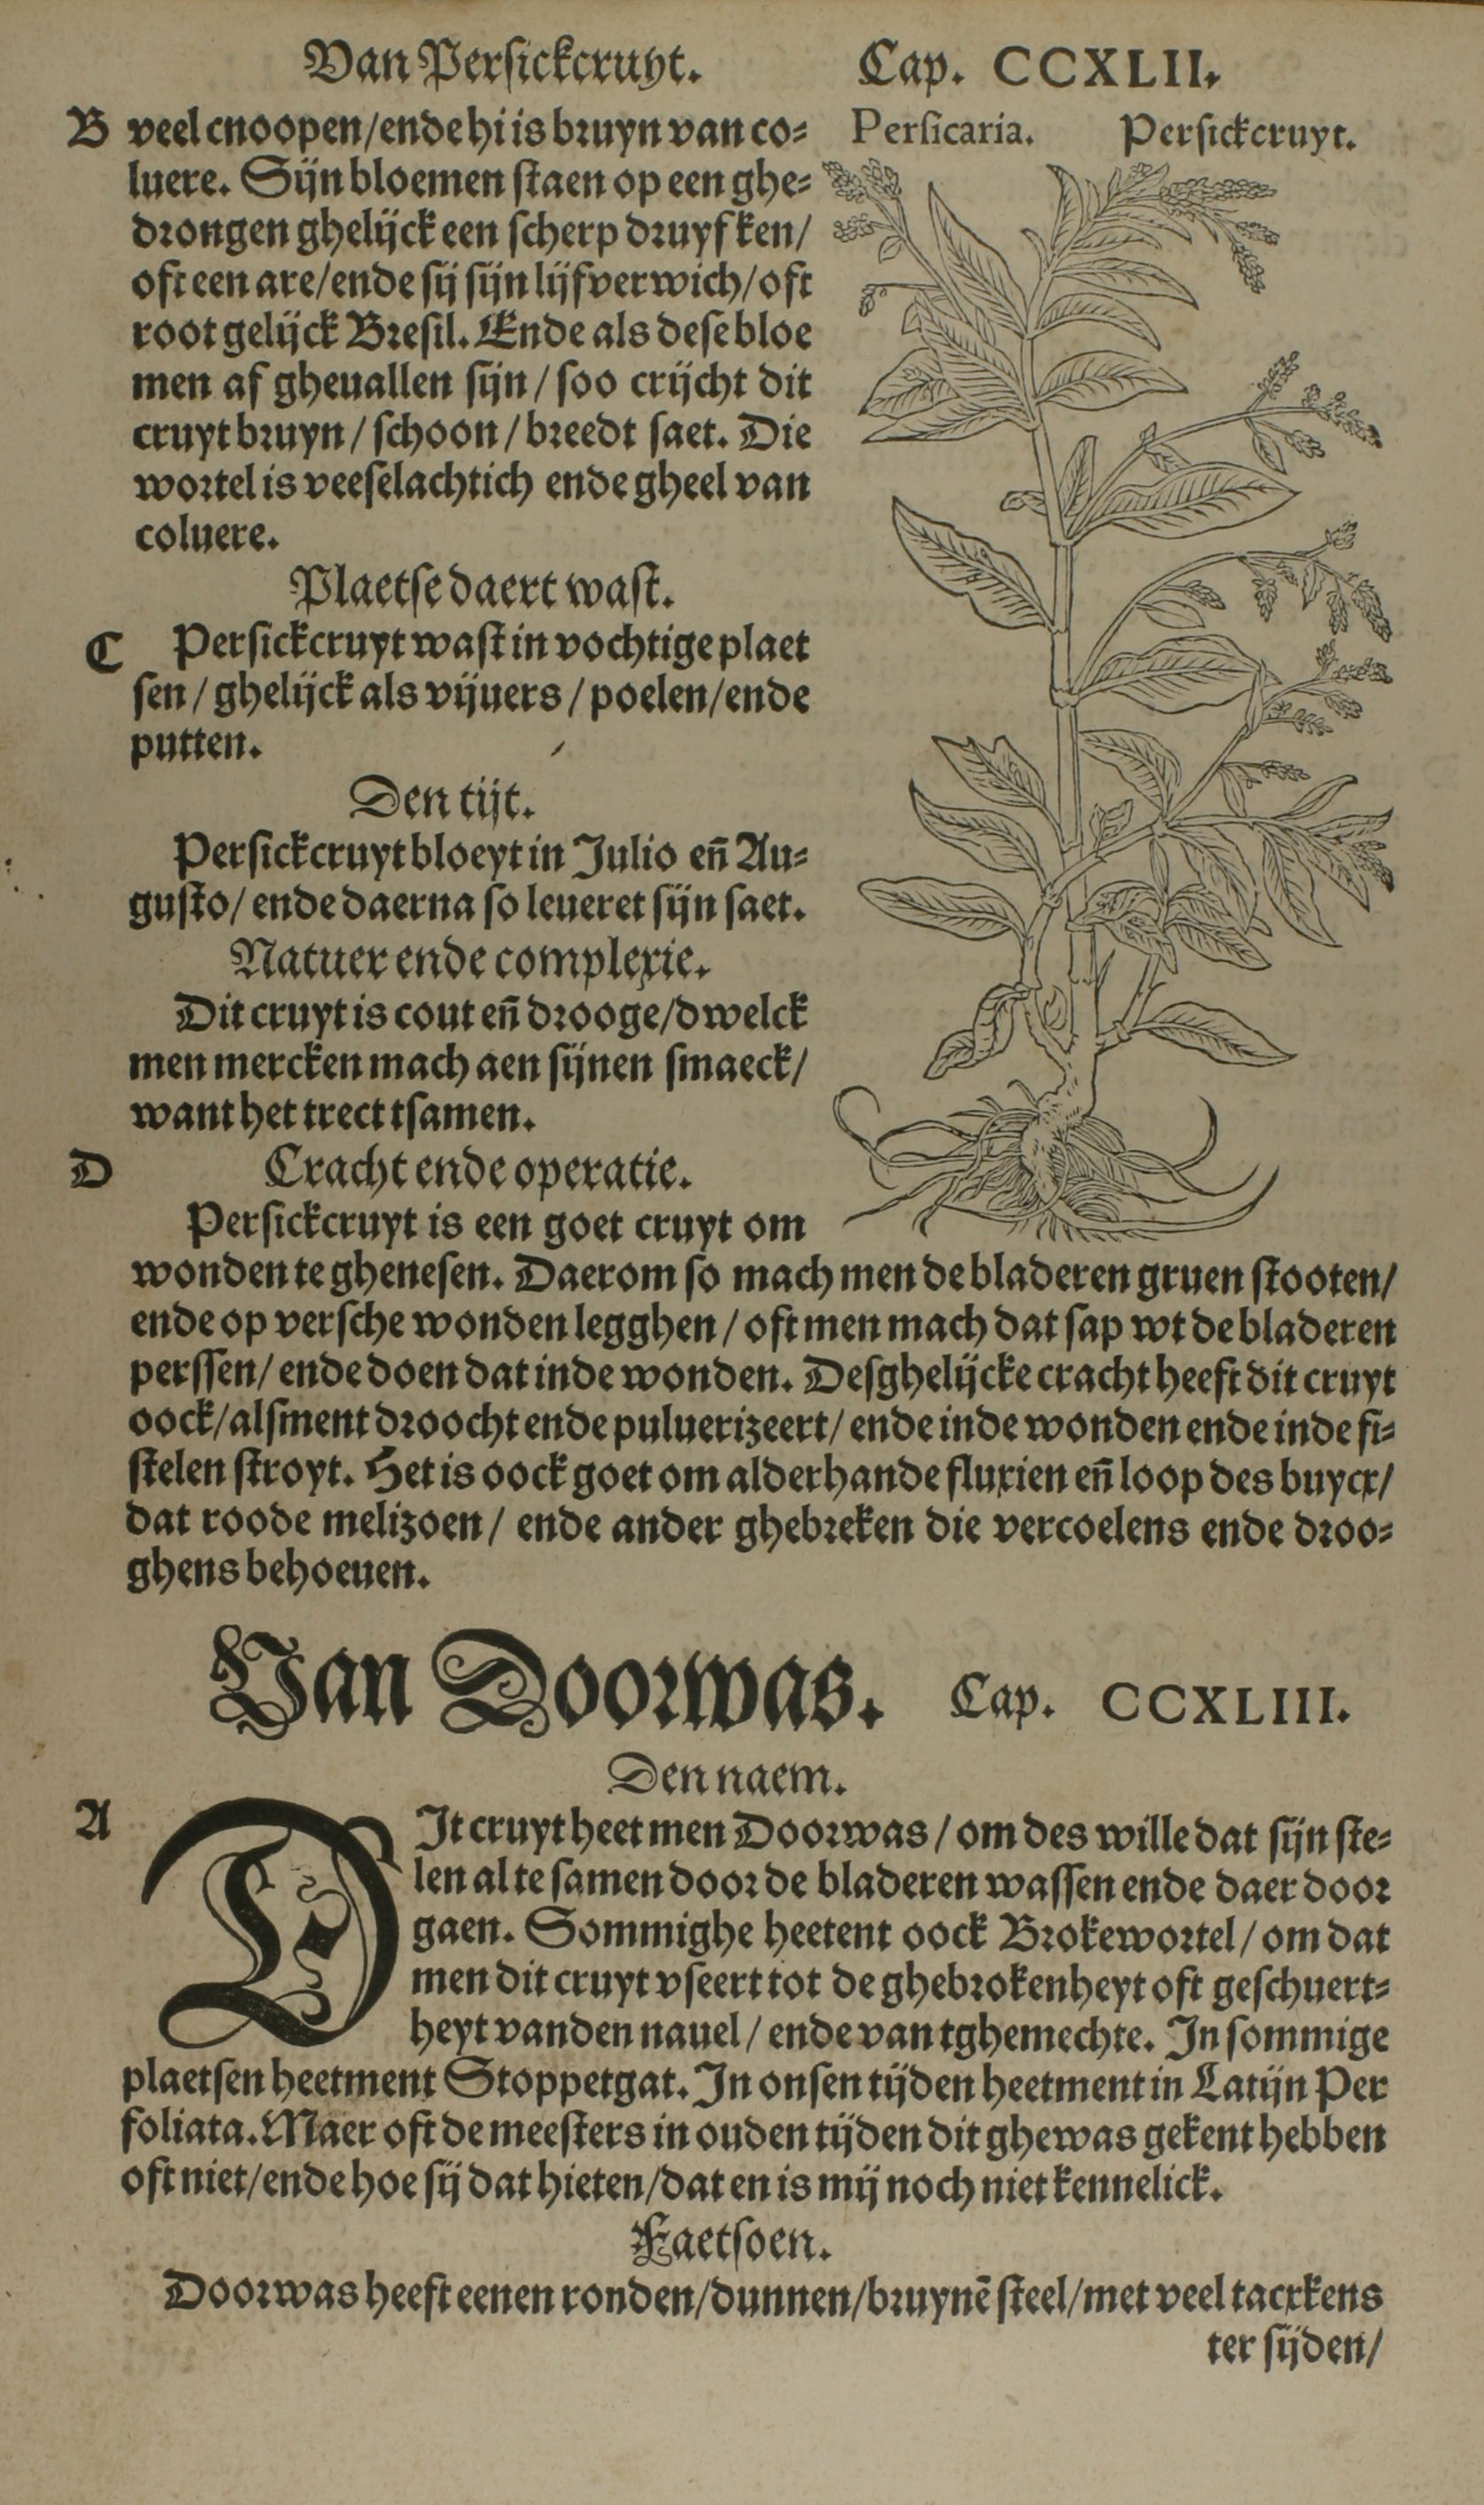 Van Persickcruyt. Cap. CCXLII.
B veel cnoopen/ende hi is bruyn van co⸗
luere. Sijn bloemen staen op een ghe⸗
drongen ghelijck een scherp druyfken/
oft een are/ende sij sijn lijfverwich/oft
root gelijck Bresil. Ende als dese bloe
men af gheuallen sijn/soo crijcht dit
cruyt bruyn/schoon/breedt saet. Die
wortel is veeselachtich ende gheel van
coluere.
Plaetse daert wast.
C Persickcruyt wast in vochtige plaet
sen/ghelijck als vijuers/poelen/ende
putten.
Den tijt.
Persickcruyt bloeyt in Julio eñ Au⸗
gusto/ende daerna so leueret sijn saet.
Natuer ende complexie.
Dit cruyt is cout eñ drooge/dwelck
men mercken mach aen sijnen smaeck/
want het trect tsamen.
D Cracht ende operatie.
Persickcruyt is een goet cruyt om
Persicaria. Persickcruyt.
wonden te ghenesen. Daerom so mach men de bladeren gruen stooten/
ende op versche wonden legghen/oft men mach dat sap wt de bladeren
perssen/ende doen dat inde wonden. Desghelijcke cracht heeft dit cruyt
oock/alsment droocht ende puluerizeert/ende inde wonden ende inde fi⸗
stelen stroyt. Het is oock goet om alderhande fluxien eñ loop des buycx/
dat roode melizoen/ende ander ghebreken die vercoelens ende droo⸗
ghens behoeuen.
Van Doorwas. Cap. CCXLIII.
Den naem.
A DIt cruyt heet men Doorwas/om des wille dat sijn ste⸗
len al te samen door de bladeren wassen ende daer door
gaen. Sommighe heetent oock Brokewortel/om dat
men dit cruyt vseert tot de ghebrokenheyt oft geschuert⸗
heyt vanden nauel/ende van tghemechte. In sommige
plaetsen heetment Stoppetgat. In onsen tijden heetment in Latijn Per
foliata. Maer oft de meesters in ouden tijden dit ghewas gekent hebben
oft niet/ende hoe sij dat hieten/dat en is mij noch niet kennelick.
Faetsoen.
Doorwas heeft eenen ronden/dunnen/bruynē steel/met veel tacxkens
ter sijden/